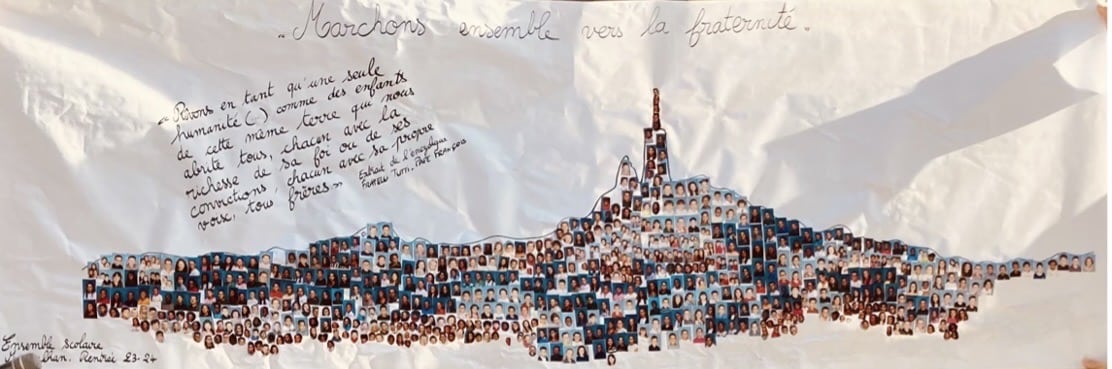 „ Marchons ensemble vers la fraternité. "
« Rêvons en tant qu'une seule
humanité (..) comme des enfants
de cette même terre qui nous
abrite tous, chacun avec la
richesse de sa foi ou de ses
convictions, chacun avec sa propre
voix, tous frères »
Extrait de l'encyclique
FRATELLI TUTTI, PAPE FRANÇOIS
Ensemble Scolaire
Rentrée 23-24